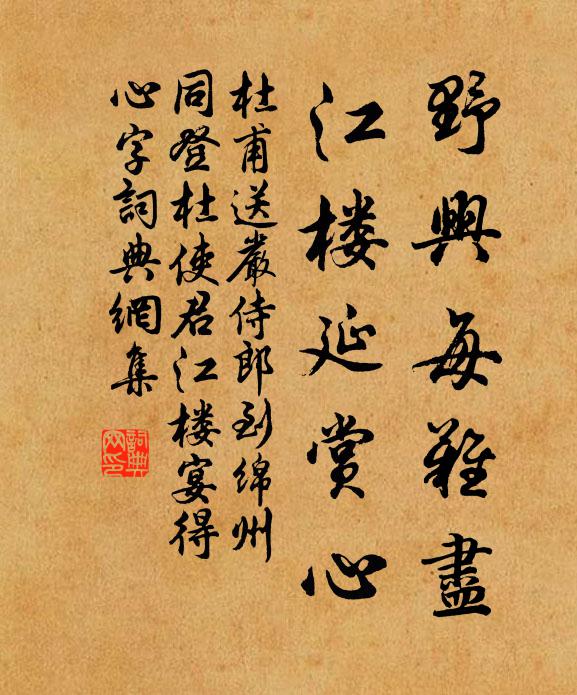 野興每難盡
江楼延赏心
杜甫送嚴侍郎到绵州
同登杜使君江楼宴得
心字詞典網集
詞典网印